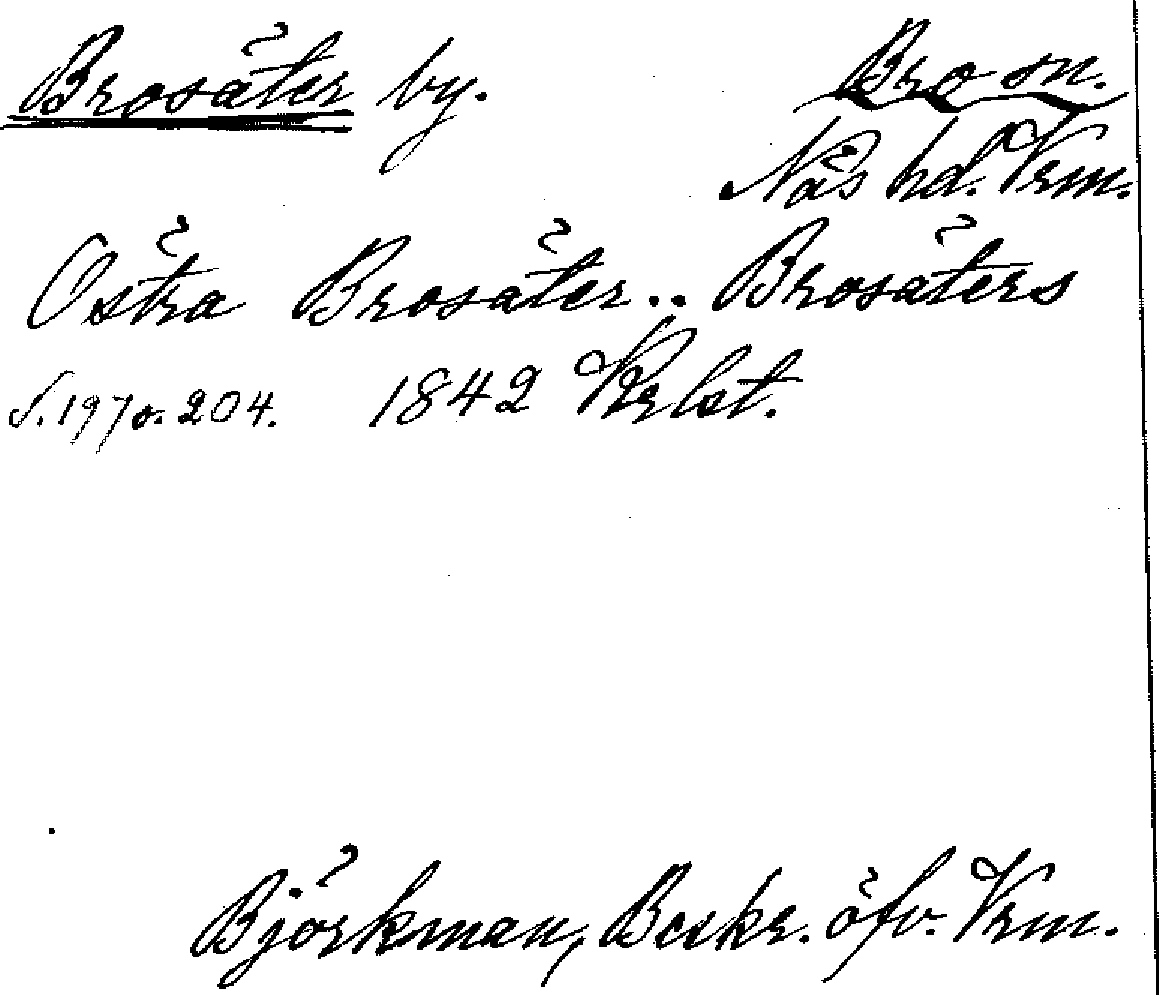 Brosäter by. Bro sn.
Näs hd. Vrm.
Östra Brosäter.. Brosäters
S. 197 o. 204. 1842 Krlst.
Björkman, Beskr. öfv. Vrm.